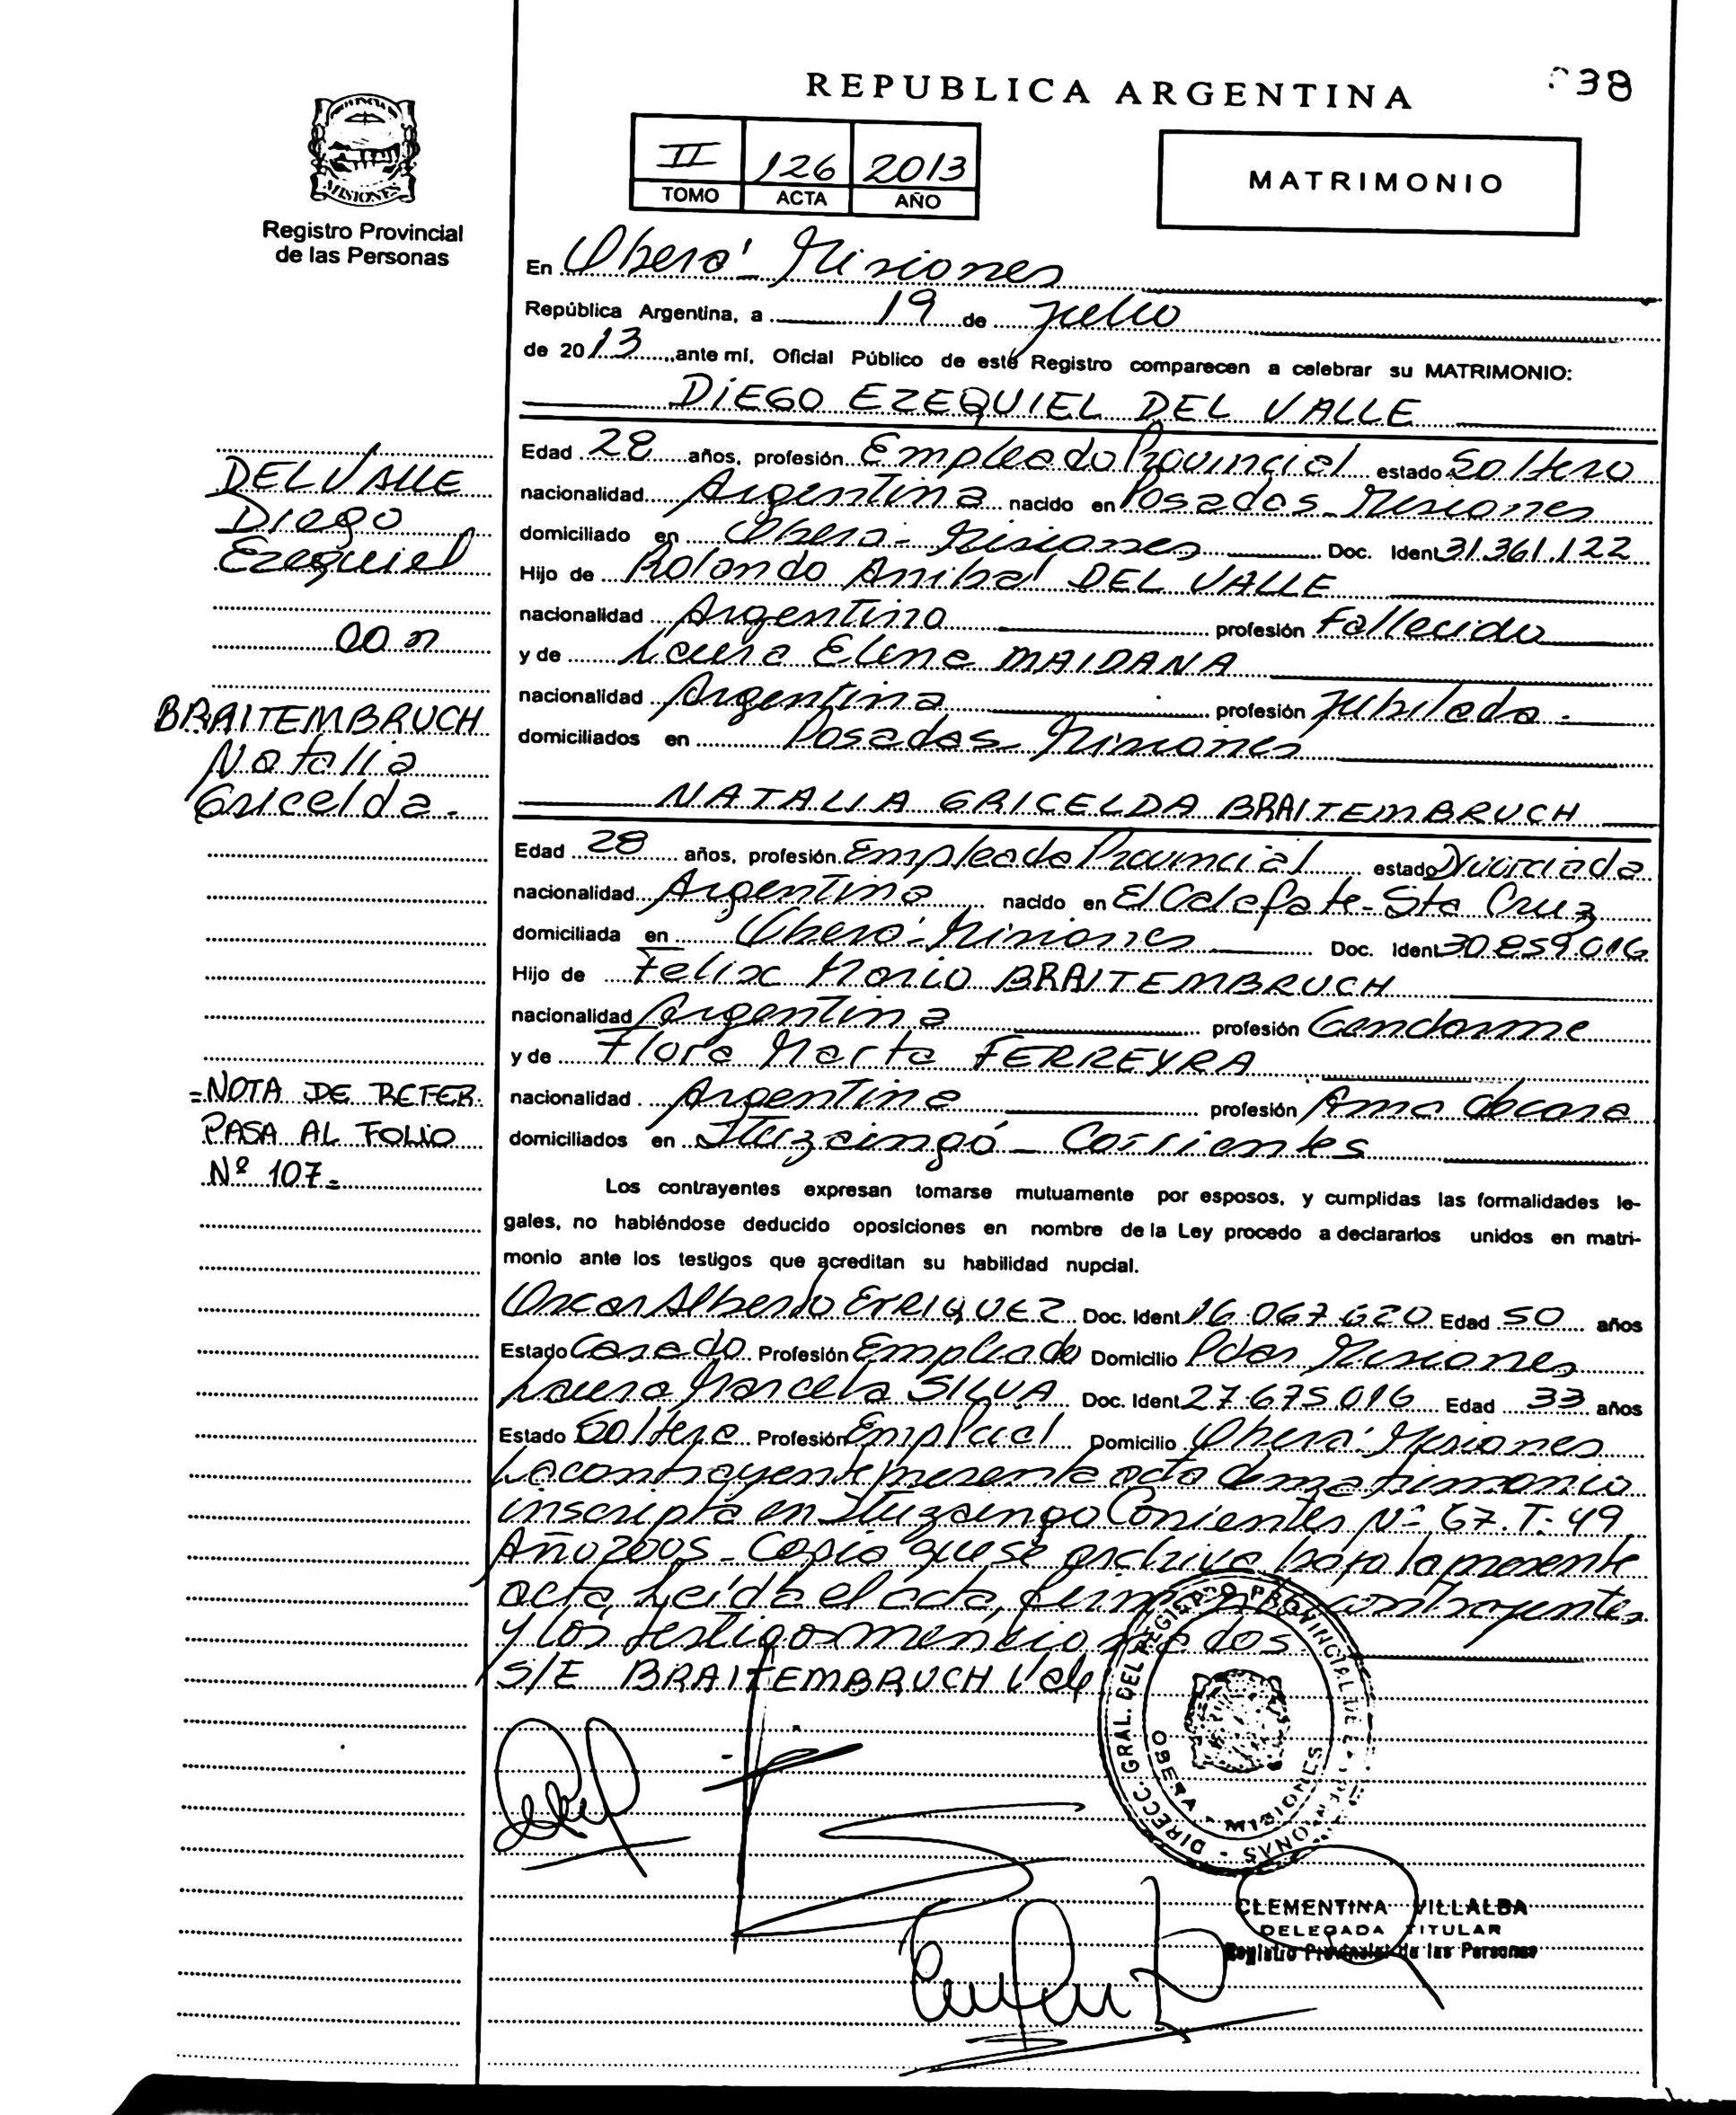 038
REPUBLICA ARGENTINA
MISIONES
Registro Provincial
de las Personas
II 126 2013
TOMO ACTA AÑO
MATRIMONIO
En Oberá - Misiones
República Argentina, a 19 de Julio
de 2013, ante mí, Oficial Público de este Registro comparecen a celebrar su MATRIMONIO:
DIEGO EZEQUIEL DEL VALLE
Edad 28 años, profesión Empleado Provincial estado Soltero
nacionalidad Argentina nacido en Posadas - Misiones
domiciliado en Oberá - Misiones Doc. Ident 31.361.122
Hijo de Rolando Anibal DEL VALLE
nacionalidad Argentino profesión Fallecido
y de Laura Elena MAIDANA
nacionalidad Argentina profesión Jubilada -
domiciliados en Posadas - Misiones
NATALIA GRICELDA BRAITEMBRUCH
Edad 28 años, profesión Empleada Provincial estado Divorciada
nacionalidad Argentina nacido en El Calafate - Sta Cruz
domiciliada en Oberá - Misiones Doc. Ident 30.859.016
Hijo de Felix Mario BRAITEMBRUCH
nacionalidad Argentina profesión Gendarme
y de Flora Marta FERREYRA
nacionalidad Argentina profesión Ama de casa
domiciliados en Ituzaingó - Corrientes
Los contrayentes expresan tomarse mutuamente por esposos, y cumplidas las formalidades le-
gales, no habiéndose deducido oposiciones en nombre de la Ley procedo a declararlos unidos en matri-
monio ante los testigos que acreditan su habilidad nupcial.
Oscar Alberto ENRIQUEZ Doc. Ident 16.067.620 Edad 50 años
Estado Casado Profesión Empleado Domicilio Pdas Misiones
Laura Marcela SILVA Doc. Ident 27.675.016 Edad 33 años
Estado Soltera Profesión Emp Pcial Domicilio Oberá - Misiones
La contrayente presenta acta de matrimonio
inscripta en Ituzaingo Corrientes Nº 67. T. 49
Año 2005 - Copia que se archiva bajo la presente
acta, Leída el acta, firman los contrayentes
y los testigos mencionados
S/E BRAITEMBRUCH Vale
DEL VALLE
Diego
Ezequiel
con
BRAITEMBRUCH
Natalia
Gricelda -
= NOTA DE REFER.
PASA AL FOLIO
Nº 107 =
DIRECC. GRAL. DEL REGISTRO PROVINCIAL DE LAS PERSONAS
OBERA - MISIONES
CLEMENTINA VILLALBA
DELEGADA TITULAR
Registro Provincial de las Personas